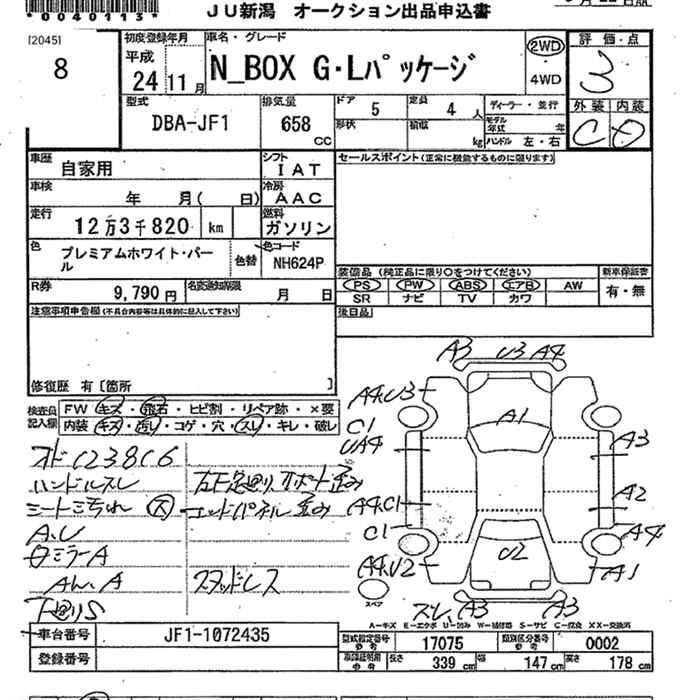 *0040113*
JU新潟 オークション出品申込書
[2045]
8
初度登録年月
平成
24 11 月
車名・グレード
N_BOX G・Lパッケージ
2WD
4WD
評価・点
3
外装 内装
C D
型式
DBA-JF1
排気量
658 CC
ドア 5
定員 4 人
形状
積載 kg
ディーラー・並行
モデル年式 年
ハンドル 左・右
車歴
自家用
シフト
IAT
セールスポイント(正常に機能するものに限ります)
車検
年 月( 日)
冷房
AAC
走行
12万3千820 km
燃料
ガソリン
色
プレミアムホワイト・パール
色替
色コード
NH624P
装備品(純正品に限り○をつけてください)
新車保証書
PS PW ABS エアB AW
SR ナビ TV カワ
有・無
R券
9,790 円
名変通知期限
月 日
注意事項申告欄(不具合内容等は具体的に記入して下さい)
後日品
修復歴 有〔箇所 〕
検査員記入欄
FW キズ・飛石・ヒビ割・リペア跡・×要
内装 キズ・汚レ・コゲ・穴・スレ・キレ・破レ
ハンドルスレ
シート汚れ 大
A、U
ミラーA
下廻りS
左F足廻り、サポート歪み
エンドパネル歪み
スタッドレス
A3 U3 A4
A4、U3
C1
UA4
A1
A3
A2
A4、C1
C1
A4
A4、U2
U2
A1
スペア
スレ、A3 A3
A-キズ E-エクボ U-凹み W-補修跡 S-サビ C-腐食 XX-交換済
車台番号
JF1-1072435
登録番号
型式指定番号 参考
17075
類別区分番号 参考
0002
車検証明用 参考
長さ 339 cm
幅 147 cm
高さ 178 cm